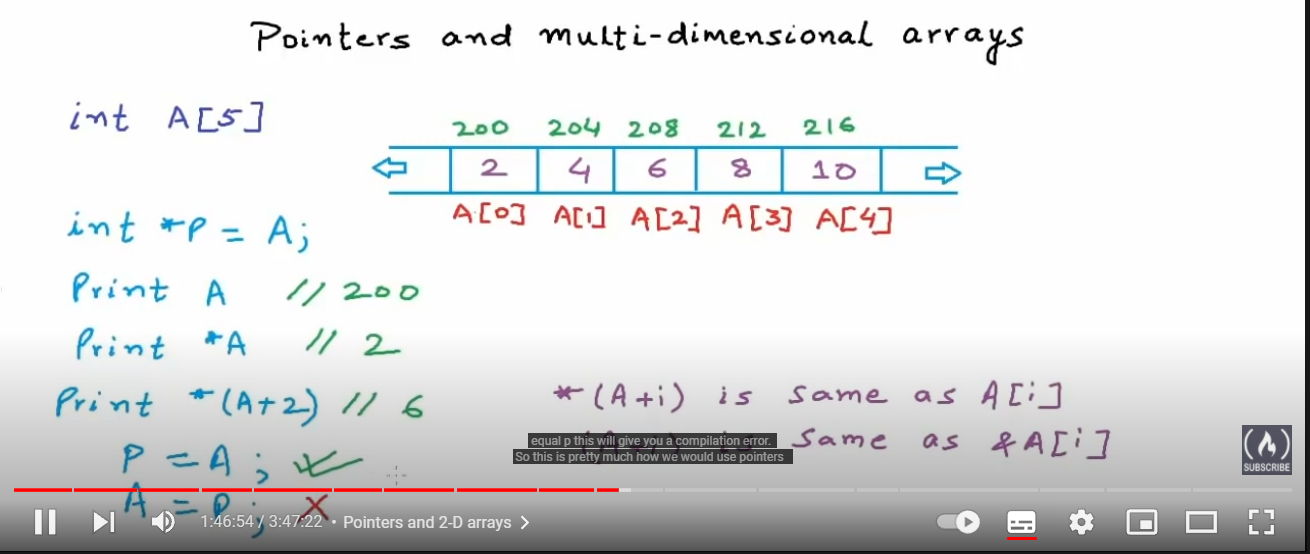 Pointers and multi-dimensional arrays
int A[5]
200 204 208 212 216
2 4 6 8 10
A[0] A[1] A[2] A[3] A[4]
int *P = A;
Print A // 200
Print *A // 2
Print *(A+2) // 6
*(A+i) is same as A[i]
P = A;
is same as &A[i]
equal p this will give you a compilation error.
So this is pretty much how we would use pointers
A = P; X
SUBSCRIBE
1:46:54 / 3:47:22 • Pointers and 2-D arrays